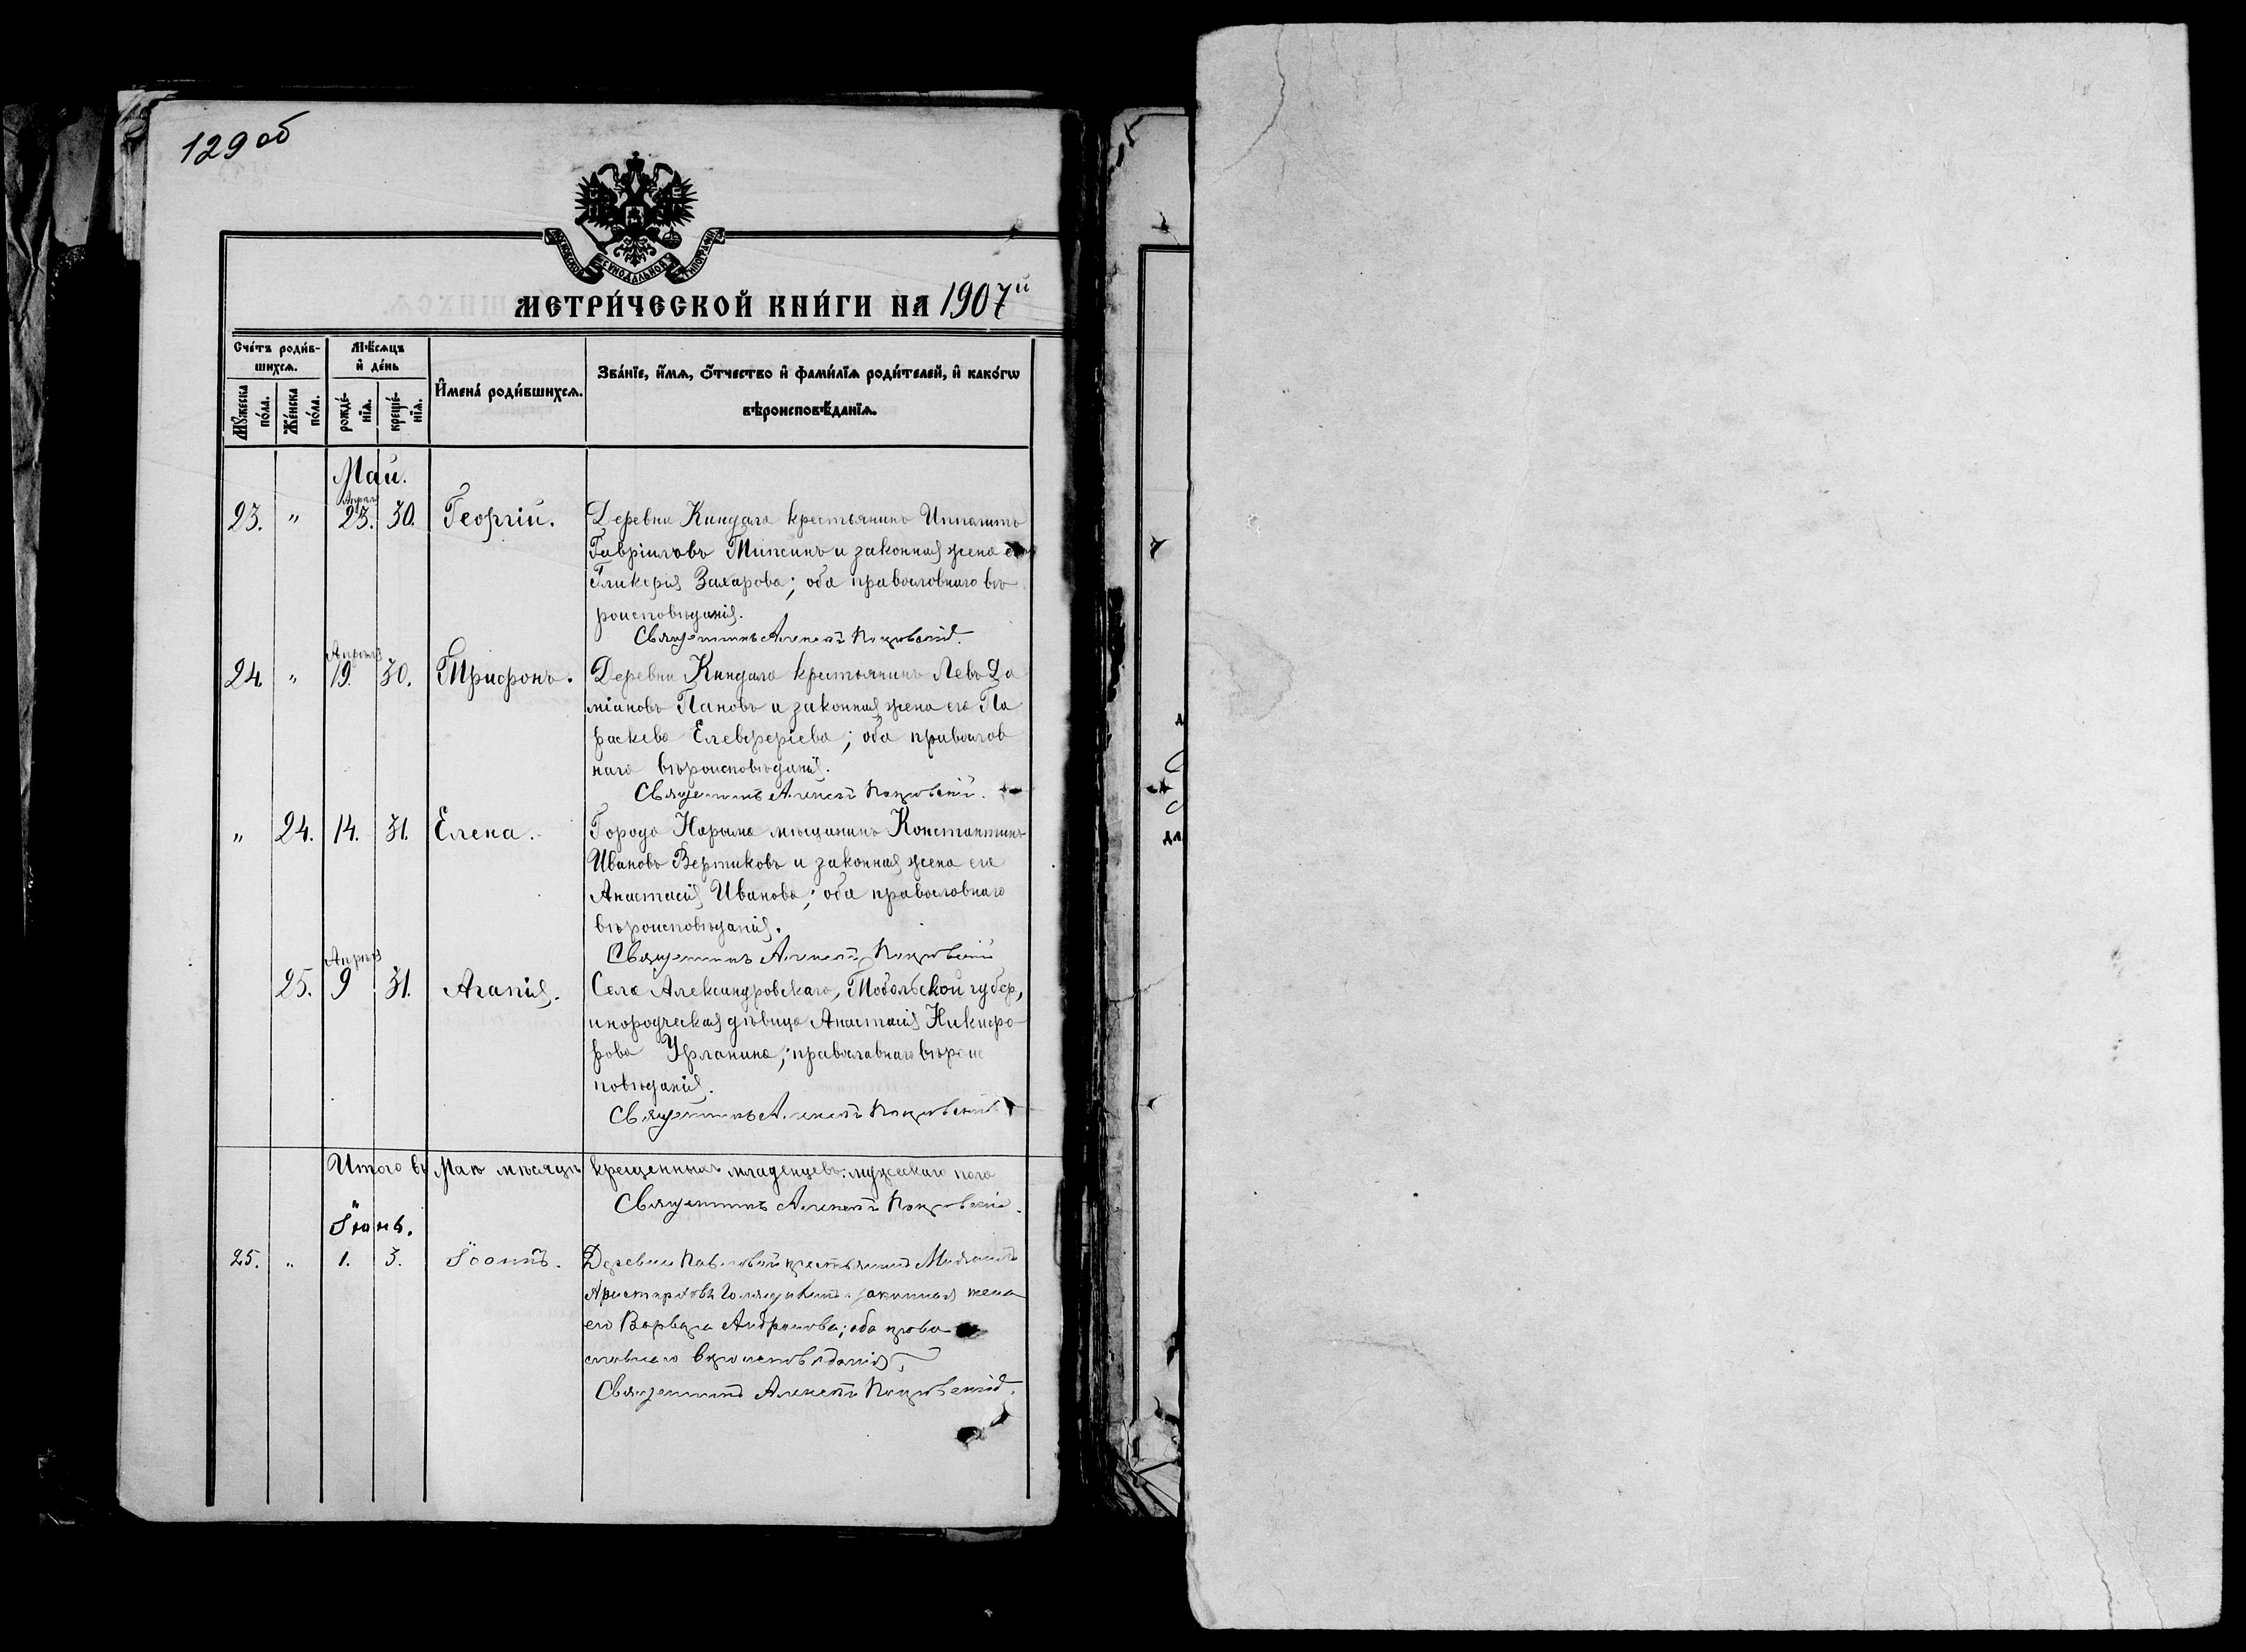 129 об
МОСКОВСКОЙ СѴНОДАЛЬНОЙ ТИПОГРАФІИ
МЕТРИ́ЧЕСКОЙ КНИ́ГИ НА 1907й
Сче́тъ роди́вшихсѧ.
Мꙋ́жеска по́ла.
Же́нска по́ла.
Мѣ́сѧцъ и҆ де́нь
рожде́нїѧ.
креще́нїѧ.
И҆мена̀ роди́вшихсѧ.
Зва́нїе, и҆́мѧ, ѻ҆́тчество и҆ фами́лїѧ роди́телей, и҆ како́гѡ
вѣроисповѣ́данїѧ.
Май.
23. " Апрѣл 23. 30. Георгій.
Деревни Киндала крестьянинъ Ипполитъ
Гавріиловъ Типсинъ и законная жена его
Гликерія Захарова; оба православнаго вѣ-
роисповѣданія.
Священникъ Алексѣй Покровскій.
24. " Апрѣля 19. 30. Трифонъ.
Деревни Киндала крестьянинъ Левъ Да
міановъ Пановъ и законная жена его Па
раскева Елевферіева; оба православ
наго вѣроисповѣданія.
Священникъ Алексѣй Покровскій.
" 24. 14. 31. Елена.
Города Нарыма мѣщанинъ Константинъ
Ивановъ Вертиковъ и законная жена его
Анастасія Иванова; оба православнаго
вѣроисповѣданія.
Священникъ Алексѣй Покровскій
25. Апрѣля 9 31. Агапія.
Села Александровскаго, Тобольской губер,
инородческая дѣвица Анастасія Никифо-
рова Урланина; православнаго вѣроис
повѣданія.
Священникъ Алексѣй Покровскій
Итого въ Маѣ мѣсяцѣ крещенныхъ младенцевъ: мужескаго пола
Священникъ Алексѣй Покровскій.
Іюнь.
25. " 1. 3. Іоаннъ.
Деревни Павловой крестьянинъ Михаилъ
Аристарховъ законная жена
его Варвара Андронова; оба право
славнаго вѣроисповѣданія.
Священникъ Алексѣй Покровскій.